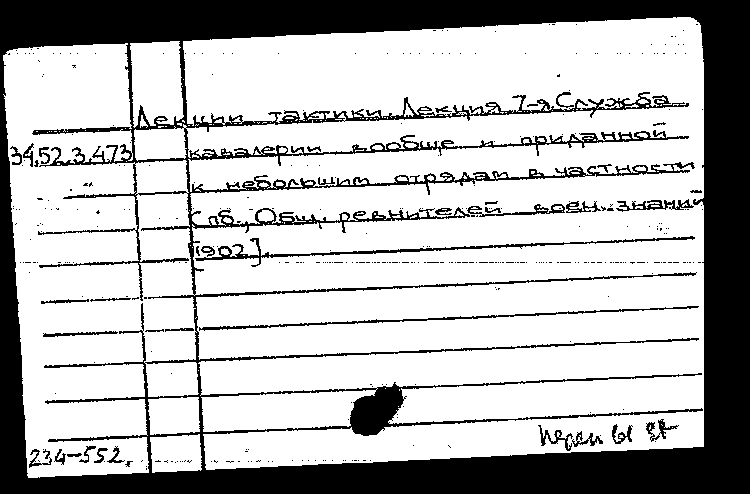 Лекции тактики. Лекция 7-я. Служба
34.52.3.473 кавалерии вообще и приданной
к небольшим отрядам в частности.
Спб., Общ. ревнителей воен. знаний
[1902].
234-552.